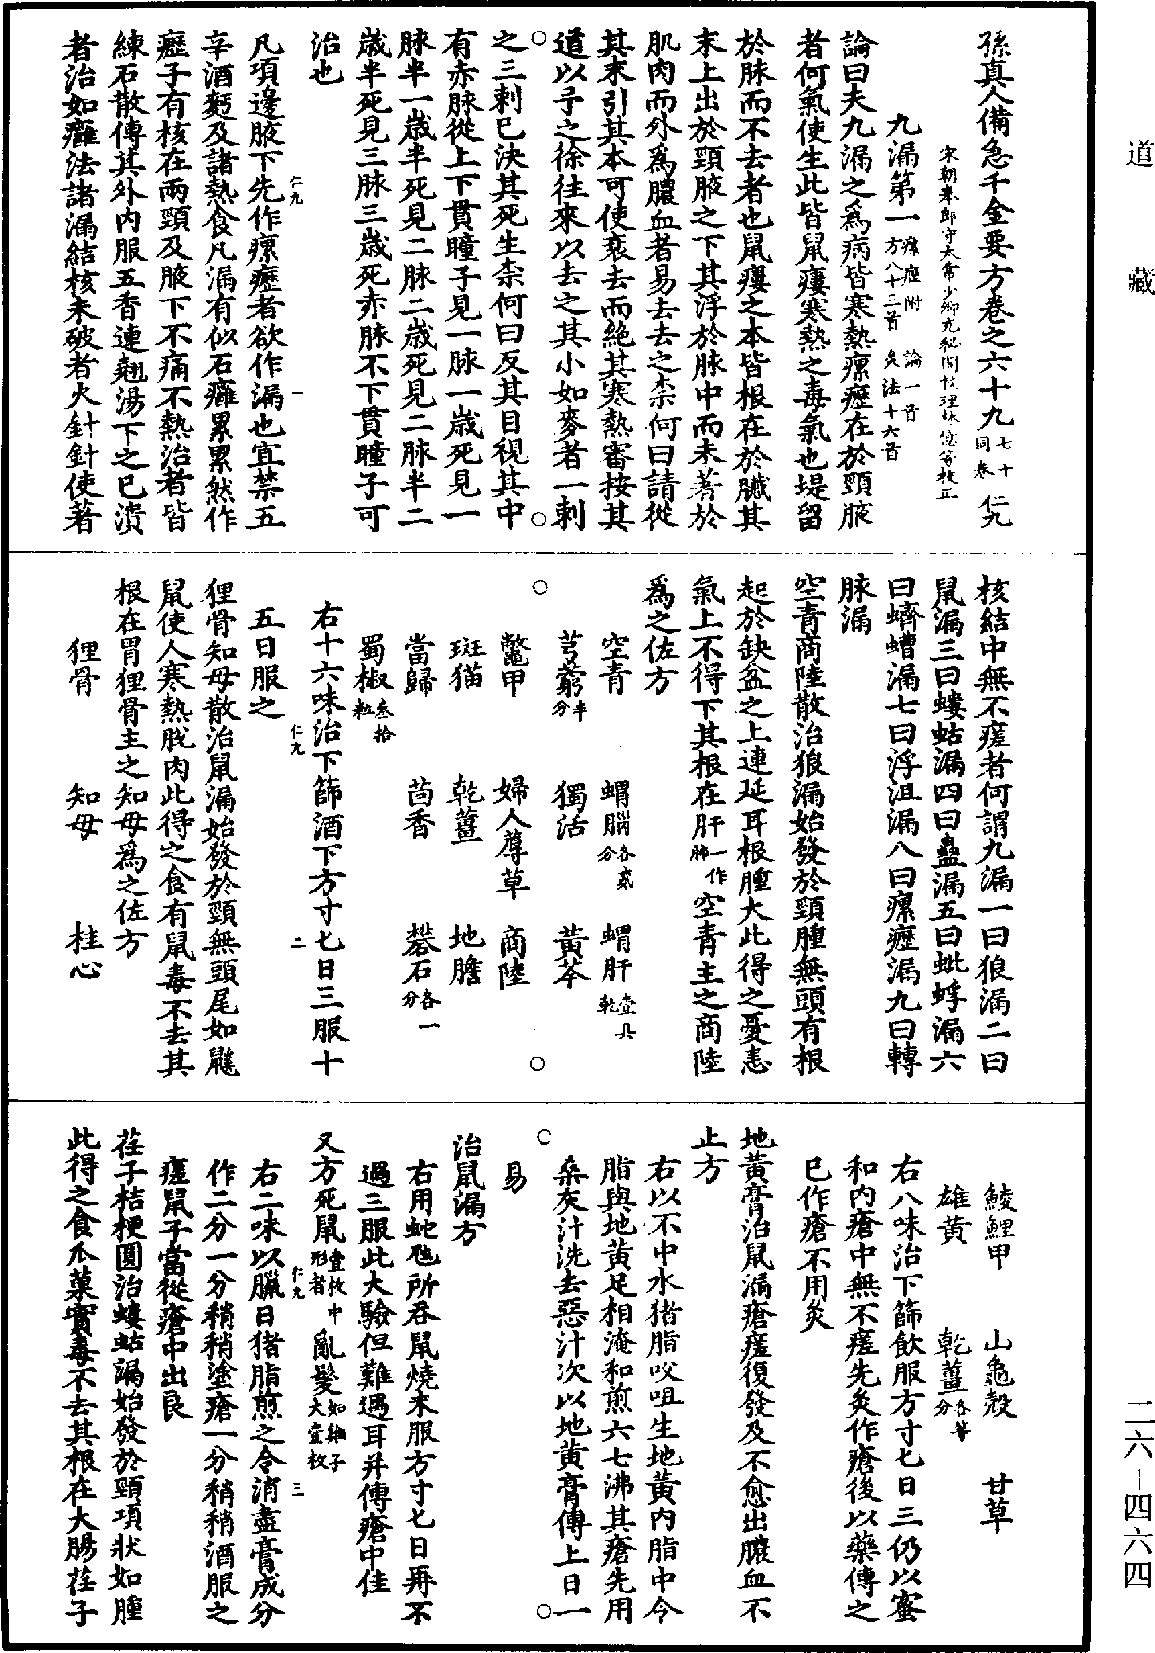 道藏
孫真人備急千金要方卷之六十九 七十同卷 仁九
宋朝奉郎守太常少卿充祕閣校理林億等校正
九漏第一 瘰癧附 論一首 方八十三首 灸法十六首
論曰夫九漏之為病皆寒熱瘰癧在於頸腋
者何氣使生此皆鼠瘻寒熱之毒氣也堤留
於脉而不去者也鼠瘻之本皆根在於臟其
末上出於頸腋之下其浮於脉中而未著於
肌肉而外為膿血者易去去之柰何曰請從
其末引其本可使衰去而絶其寒熱審按其
道以予之徐往來以去之其小如麥者一刺
之三刺已決其死生柰何曰反其目視其中
有赤脉從上下貫瞳子見一脉一歲死見一
脉半一歲半死見二脉二歲死見二脉半二
歲半死見三脉三歲死赤脉不下貫瞳子可
治也
凡項邊腋下先作瘰癧者欲作漏也宜禁五
辛酒麪及諸熱食凡漏有似石癰累累然作
癧子有核在兩頸及腋下不痛不熱治者皆
練石散傅其外內服五香連翹湯下之已潰
者治如癰法諸漏結核未破者火針針使著
仁九 一
核結中無不瘥者何謂九漏一曰狼漏二曰
鼠漏三曰螻蛄漏四曰蠭漏五曰蚍蜉漏六
曰蠐螬漏七曰浮沮漏八曰瘰癧漏九曰轉
脉漏
空青商陸散治狼漏始發於頸腫無頭有根
起於缺盆之上連延耳根腫大此得之憂恚
氣上不得下其根在肝一作肺空青主之商陸
為之佐方
空青 蝟腦各貳分 蝟肝壹具乾
芎藭半分 獨活 黃芩
鼈甲 婦人蓐草 商陸
斑猫 乾薑 地膽
當歸 茴香 礬石各一分
蜀椒叁拾粒
右十六味治下篩酒下方寸匕日三服十
五日服之
仁九 二
狸骨知母散治鼠漏始發於頸無頭尾如鼷
鼠使人寒熱脫肉此得之食有鼠毒不去其
根在胃狸骨主之知母為之佐方
狸骨 知母 桂心
鯪鯉甲 山龜殼 甘草
雄黃 乾薑各等分
右八味治下篩飲服方寸匕日三仍以蜜
和內瘡中無不瘥先灸作瘡後以藥傅之
已作瘡不用灸
地黃膏治鼠漏瘡瘥復發及不愈出膿血不
止方
右以不中水猪脂㕮咀生地黃內脂中令
脂與地黃足相淹和煎六七沸其瘡先用
桑灰汁洗去惡汁次以地黃膏傅上日一
易
治鼠漏方
右用蛇虺所吞鼠燒末服方寸匕日再不
過三服此大驗但難遇耳并傅瘡中佳
又方死鼠壹枚中形者 亂髮如雞子大壹枚
右二味以臘日猪脂煎之令消盡膏成分
作二分一分稍稍塗瘡一分稍稍酒服之
瘥鼠子當從瘡中出良
仁九 三
荏子桔梗圓治螻蛄漏始發於頸項狀如腫
此得之食瓜菓實毒不去其根在大腸荏子
二六—四六四